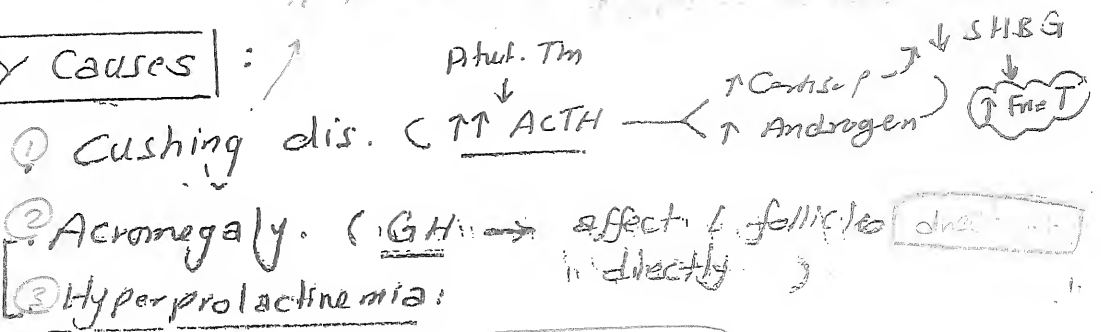 y Causes :
Pitut. Tm
↓
↓ SHBG
↓
↑ Free T
① Cushing dis. ( ↑↑ ACTH
↑ Cortisol
↑ Androgen )
② Acromegaly. ( GH → affect follicles
indirectly )
③ Hyperprolactinemia: